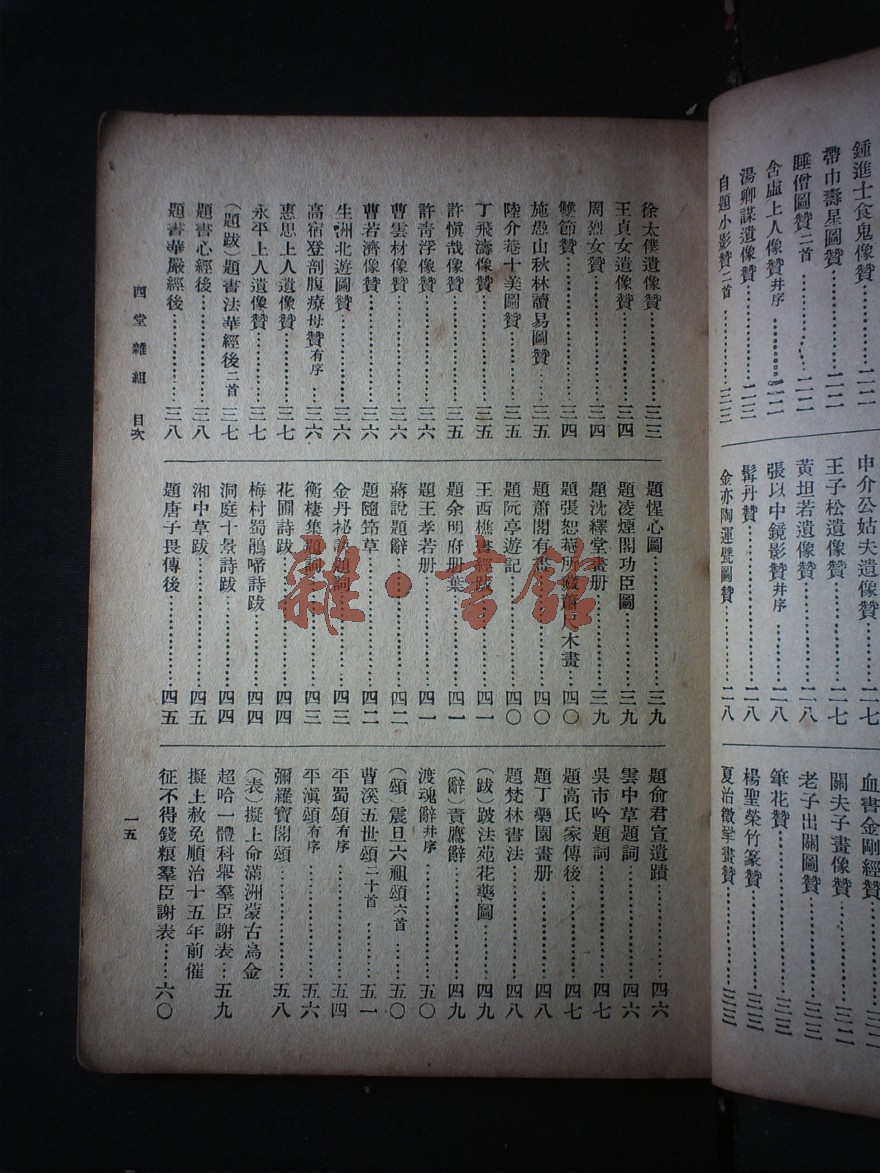 鍾進士食鬼像贊
帶巾壽星圖贊……二二
睡僧圖贊二首……二二
含虛上人像贊幷序……二二
湯卿謀遺像贊……二三
自題小影贊二首……二三
申介公姑夫遺像贊……二七
王子松遺像贊……二七
黃坦若遺像贊……二八
張以中鏡影贊幷序……二八
髯丹贊……二八
金亦陶運甓圖贊……二八
血書金剛經贊……三二
關夫子畫像贊……三二
老子出關圖贊……三三
筆花贊……三三
楊聖榮竹篆贊……三三
徐太僕遺像贊……三三
王貞女遺像贊……三四
周烈女贊……三四
雙節贊……三四
施愚山秋林讀易圖贊……三五
陸介菴十美圖贊……三五
丁飛濤像贊……三五
許愼哉像贊……三五
許靑浮像贊……三六
曹雲材像贊……三六
曹若濟像贊……三六
生洲北遊圖贊……三六
高宿登剖腹療母贊有序……三六
惠思上人遺像贊……三七
永平上人遺像贊……三七
(題跋)題書法華經後二首……三七
題書心經後……三八
題書華嚴經後……三八
題惺心圖……三九
題凌煙閣功臣圖……三九
題沈繹堂畫册……三九
題張恕菴所藏蕭尺木畫……四〇
題蕭閣有畫……四〇
題阮亭遊記……四〇
王西樵書經跋……四一
題余明府册葉……四一
題王孝若册……四一
蔣說題辭……四二
題隨筘草……四二
金丹祕訣題詞……四三
衡棲集題詞……四三
花圃詩跋……四四
梅村蜀鵑啼詩跋……四四
洞庭十景詩跋……四四
湘中草跋……四五
題唐子畏傳後……四五
題俞君宣遺蹟……四六
雲中草題詞……四六
吳市吟題詞……四七
題高氏家傳後……四七
題丁藥園畫册……四八
題梵林書法……四八
(跋)跛法苑花藥圖……四九
(辭)責鷹辭……四九
渡魂辭幷序……五〇
(頌)震旦六祖頌六首……五〇
曹溪五世頌二十首……五一
平蜀頌有序……五四
平滇頌有序……五六
彌羅寶閣頌……五八
(表)擬上命滿洲蒙古烏金
超哈一體科舉羣臣謝表……五九
擬上赦免順治十五年前催
征不得錢糧羣臣謝表……六〇
四堂雜組 目次
一五
雜·書館